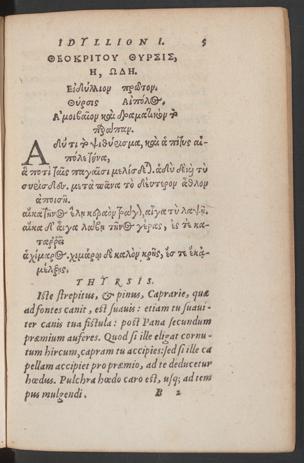 IDYLLION I. 5
ΘΕΟΚΡΙΤΟΥ ΘΥΡΣΙΣ,
Η, ΩΔΗ.
Εἰδύλλιον πρῶτον.
Θύρσις Αἰπόλος.
Ἀμοιβαῖον καὶ δραματικὸν τὸ
πρόσωπον.
Ἁδύ τι τὸ ψιθύρισμα, καὶ ἁ πίτυς αἰ-
πόλε τήνα,
ἁ ποτὶ ταῖς παγαῖσι μελίσδεται. ἁδὺ δὲ καὶ τὺ
συρίσδες, μετὰ πᾶνα τὸ δεύτερον ἆθλον
ἀποισῇ.
αἴκα τῆνος ἕλῃ κεραὸν τράγον, αἶγα τὺ λαψῇ,
αἴκα δ' αἶγα λάβῃ τῆνος γέρας, ἐς τὲ κα-
ταῤῥεῖ
ἁ χίμαρος. χιμάρῳ δὲ καλὸν κρῆς, ἔστε κ' ἀμέ-
λξῃς.
THYRSIS.
Iste strepitus, & pinus, Caprarie, quæ
ad fontes canit, est suauis: etiam tu suaui-
ter canis tua fistula: post Pana secundum
præmium auferes. Quod si ille eligat cornu-
tum hircum, capram tu accipies: sed si ille ca
pellam accipiet pro præmio, ad te deducetur
hœdus. Pulchra hœdo caro est, usq; ad tem
pus mulgendi. B 2